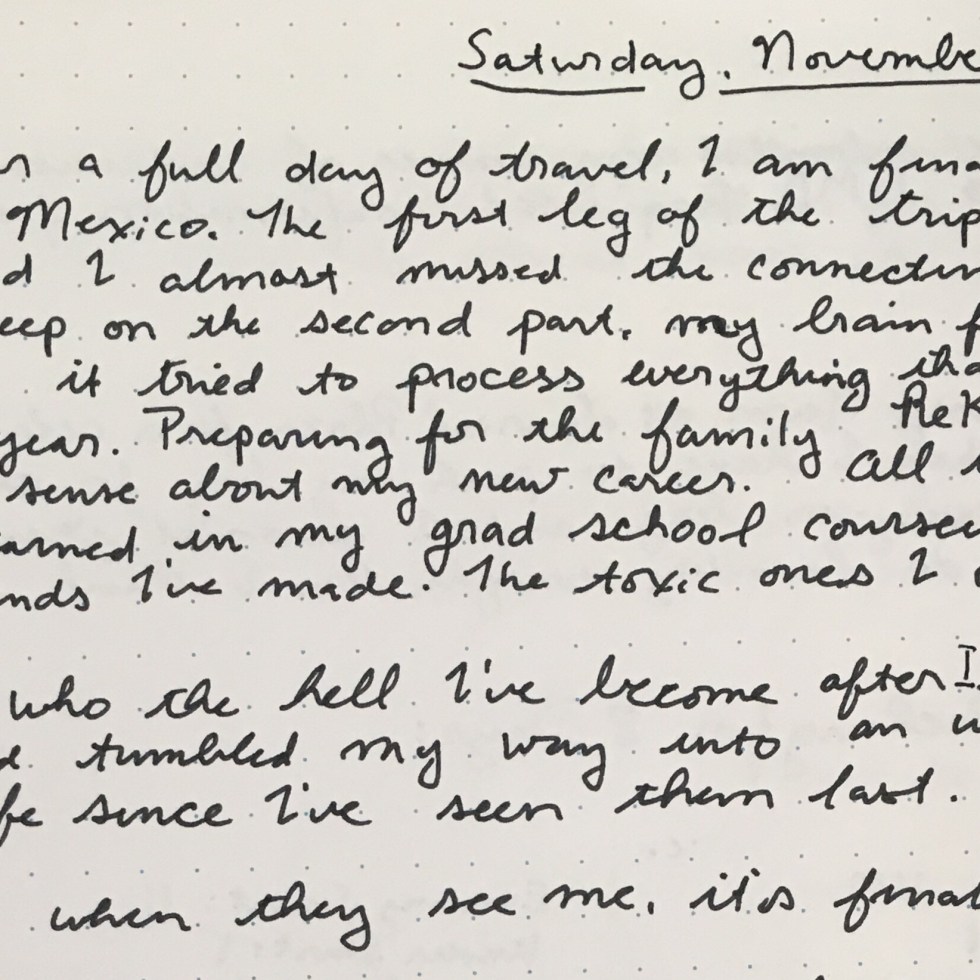 Saturday, Novembe
a full day of travel, I am fina
Mexico. The first leg of the trip
d I almost missed the connectin
eep on the second part, my brain f
it tried to process everything tha
year. Preparing for the family ReK
sense about my new career. All
arned in my grad school courses
nds I've made. The toxic ones I
who the hell I've become after I
tumbled my way into an u
fe since I've seen them last.
when they see me, it's final